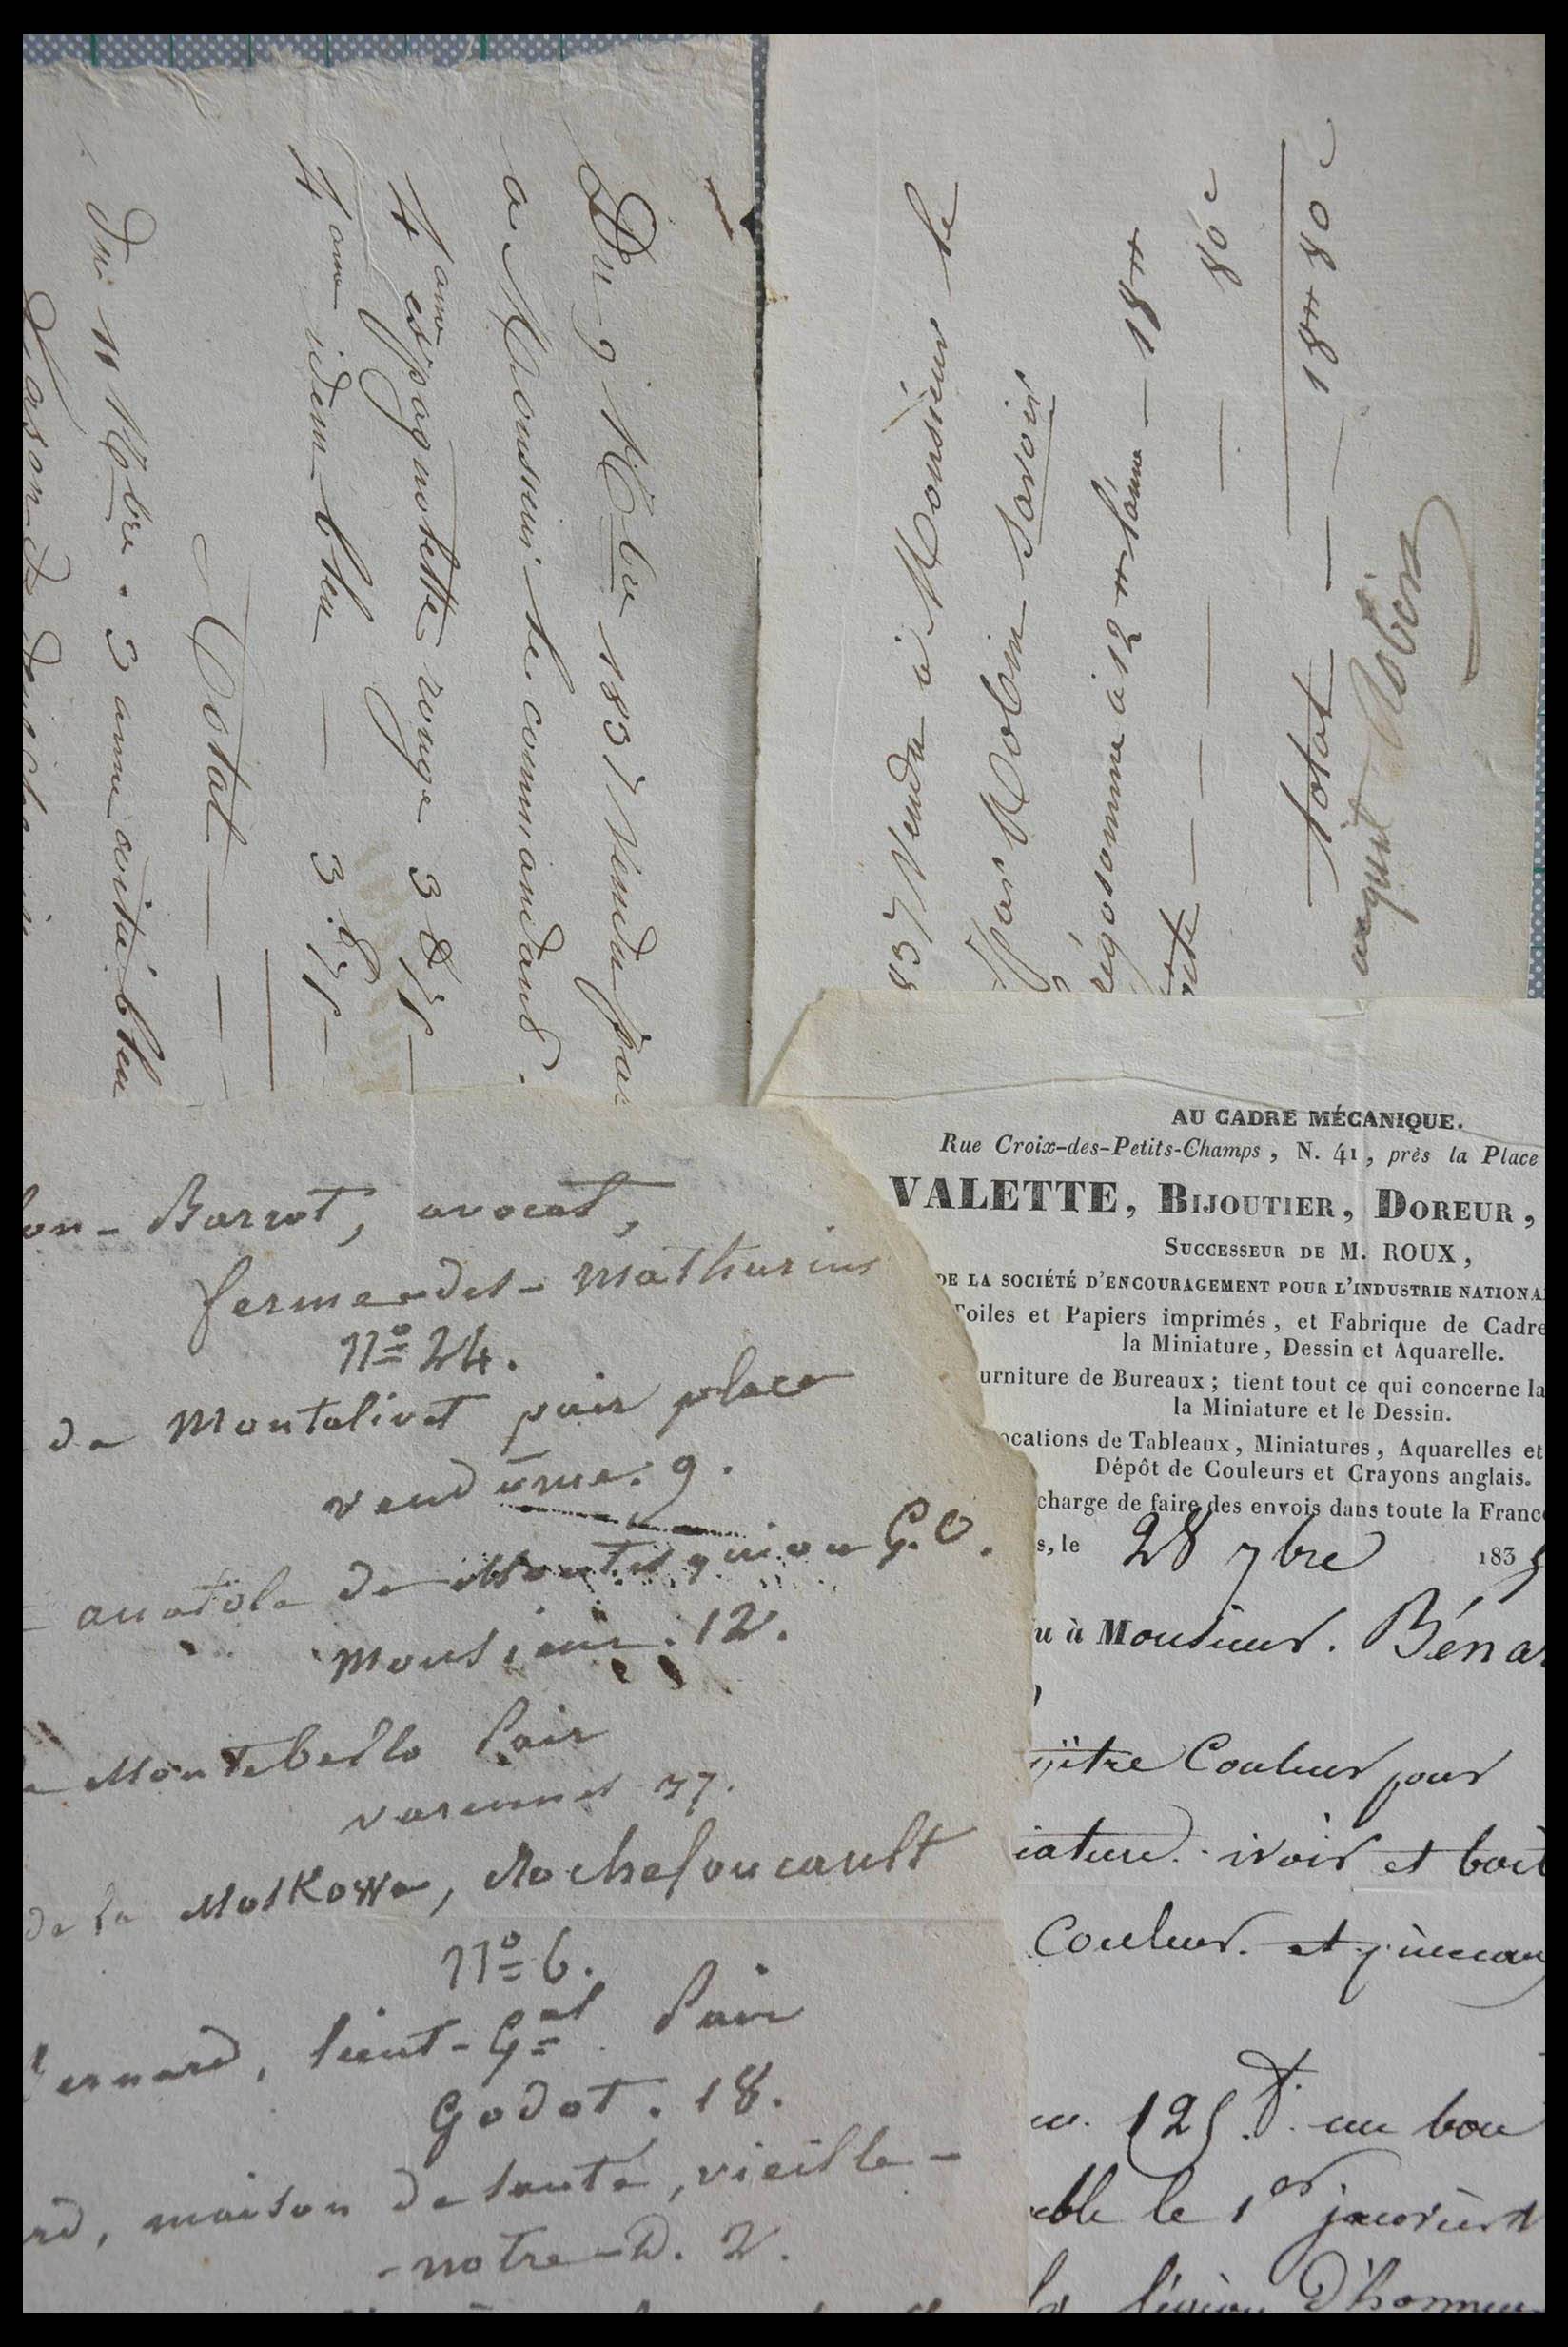 Du 9 Xbre 1837 Vendu par
a Monsieur le commandand.
4 aune espagnolette rouge 3 8 15
4 aune idem bleu 3 . 8 15
Total
Du 11 Xbre . 3 aune bleu
837 Vendu à Monsieur le
par Robin Savoir
à 12 l'aune 18
80 c
total 18 80 c
acquit Robin
on-Barrot, avocat,
ferme-des-Mathurins
No 24.
de Montalivet pair place
vendôme. 9.
anatole de Montesquiou G. O.
Monsieur. 12.
Montebello Pair
varennes 37.
de la Moskowa, Rochefoucault
No 6.
Bernard, lieut-Gal Pair
Godot. 18.
rd, maison de santé, vieille-
-notre-D. 2.
AU CADRE MÉCANIQUE.
Rue Croix-des-Petits-Champs, N. 41, près la Place
VALETTE, BIJOUTIER, DOREUR,
SUCCESSEUR DE M. ROUX,
DE LA SOCIÉTÉ D'ENCOURAGEMENT POUR L'INDUSTRIE NATIONA
Toiles et Papiers imprimés, et Fabrique de Cadre
la Miniature, Dessin et Aquarelle.
urniture de Bureaux ; tient tout ce qui concerne la
la Miniature et le Dessin.
ocations de Tableaux, Miniatures, Aquarelles et
Dépôt de Couleurs et Crayons anglais.
charge de faire des envois dans toute la Franc
s, le 28 7bre 1835
u à Monsieur. Béna
Couleur pour
iature. ivoir et boit
Couleur. et pinceau
125 f. un bon
able le 1er janvier
la légion d'honneur